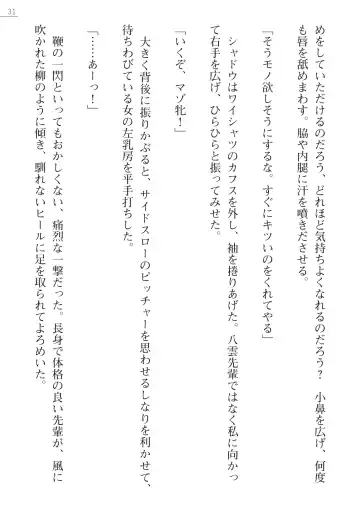 31
めをしていただけるのだろう、どれほど気持ちよくなれるのだろう？　小鼻を広げ、何度
も唇を舐めまわす。脇や内腿に汗を噴きださせる。
「そうモノ欲しそうにするな。すぐにキツいのをくれてやる」
　シャドウはワイシャツのカフスを外し、袖を捲りあげた。八雲先輩ではなく私に向かっ
て右手を広げ、ひらひらと振ってみせた。
「いくぞ、マゾ牝！」
　大きく背後に振りかぶると、サイドスローのピッチャーを思わせるしなりを利かせて、
待ちわびている女の左乳房を平手打ちした。
「……あーっ！」
　鞭の一閃といってもおかしくない、痛烈な一撃だった。長身で体格の良い先輩が、風に
吹かれた柳のように傾き、馴れないヒールに足を取られてよろめいた。